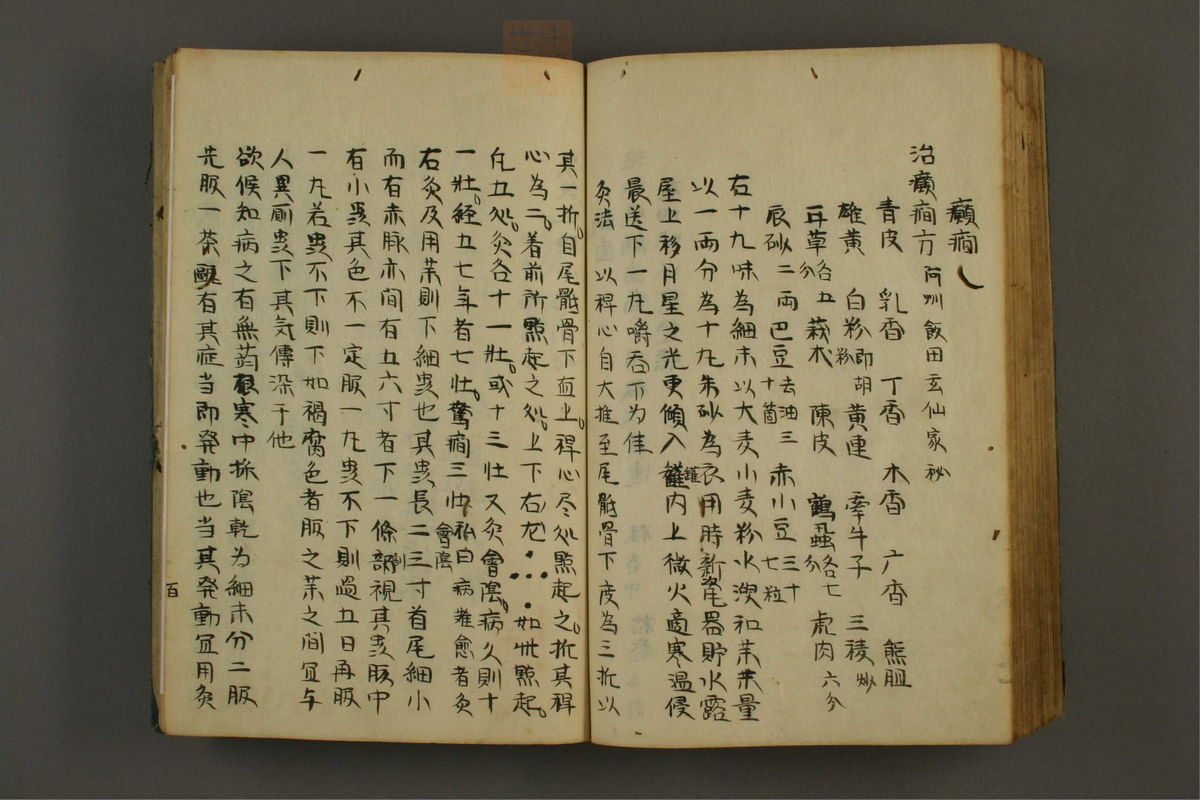 癲癇
治癲癇方 阿州飯田玄仙家秘
青皮 乳香 丁香 木香 广香 熊胆
雄黄 白粉即胡粉 黄連 牽牛子 三稜炒
耳草各五分 莪朮 陳皮 鶴虱各七分 虎肉六分
辰砂二両 巴豆去油三十箇 赤小豆三十七粒
右十九味為細末以大麦小麦粉水溲和其末量
以一両分為十九朱砂為衣用時新瓷器貯水露
屋上移月星之光更傾入鑵内上微火適寒温侵
晨送下一丸嚼呑下為佳
灸法 以稗心自大推至尾骶骨下度為三折以
其一折自尾骶骨下直上稗心尽処點起之折其稗
心為二着前所點起之処上下右左 如此點起
凡五処灸各十一壮或十三壮又灸會陰病久則十
一壮経五七年者七壮驚癇三壮私曰會陰病難愈者灸
右灸及用薬則下細虫也其虫長二三寸首尾細小
而有赤脉亦間有五六寸者下一條剖視其虫腹中
有小虫其色不一定服一丸虫不下則過五日再服
一丸若虫不下則下如褐腐色者服之薬之間宜与
人異厠虫下其気傳染于他
欲候知病之有無蒟根寒中採陰乾為細末分二服
先服一茶甌有其症当即発動也当其発動宜用灸
百